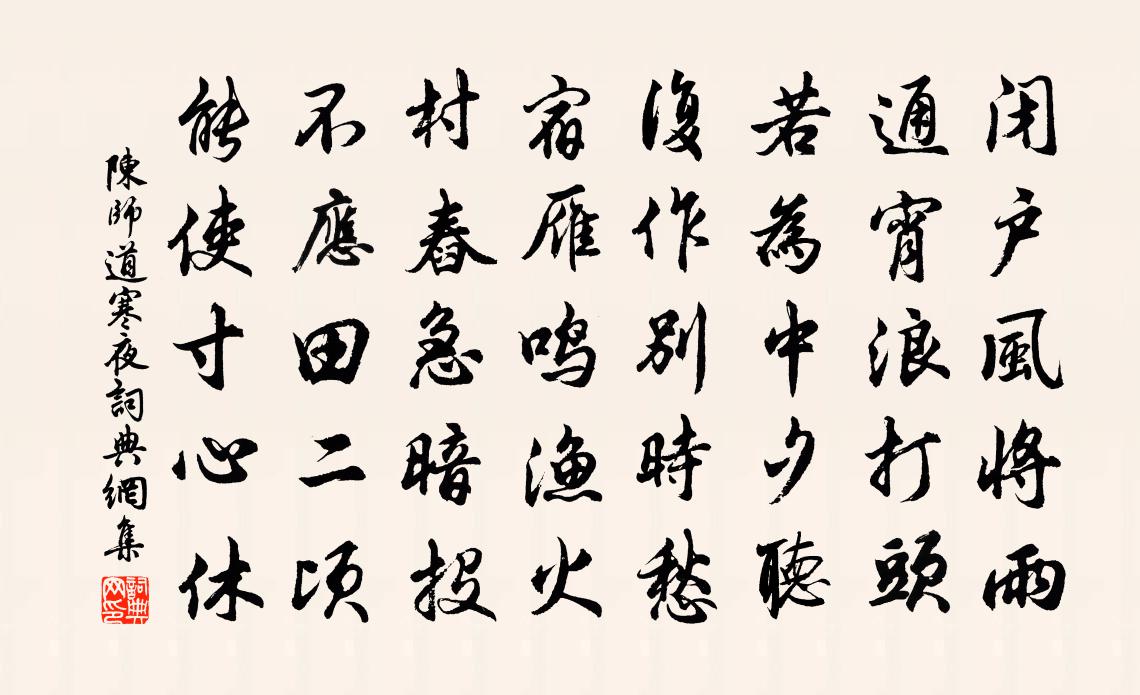 閉户風將雨
通宵浪打頭
若為中夕聽
復作別時愁
宿雁鳴漁火
村舂急暗投
不應田二頃
能使寸心休
陳師道寒夜詞典網集
詞典网印